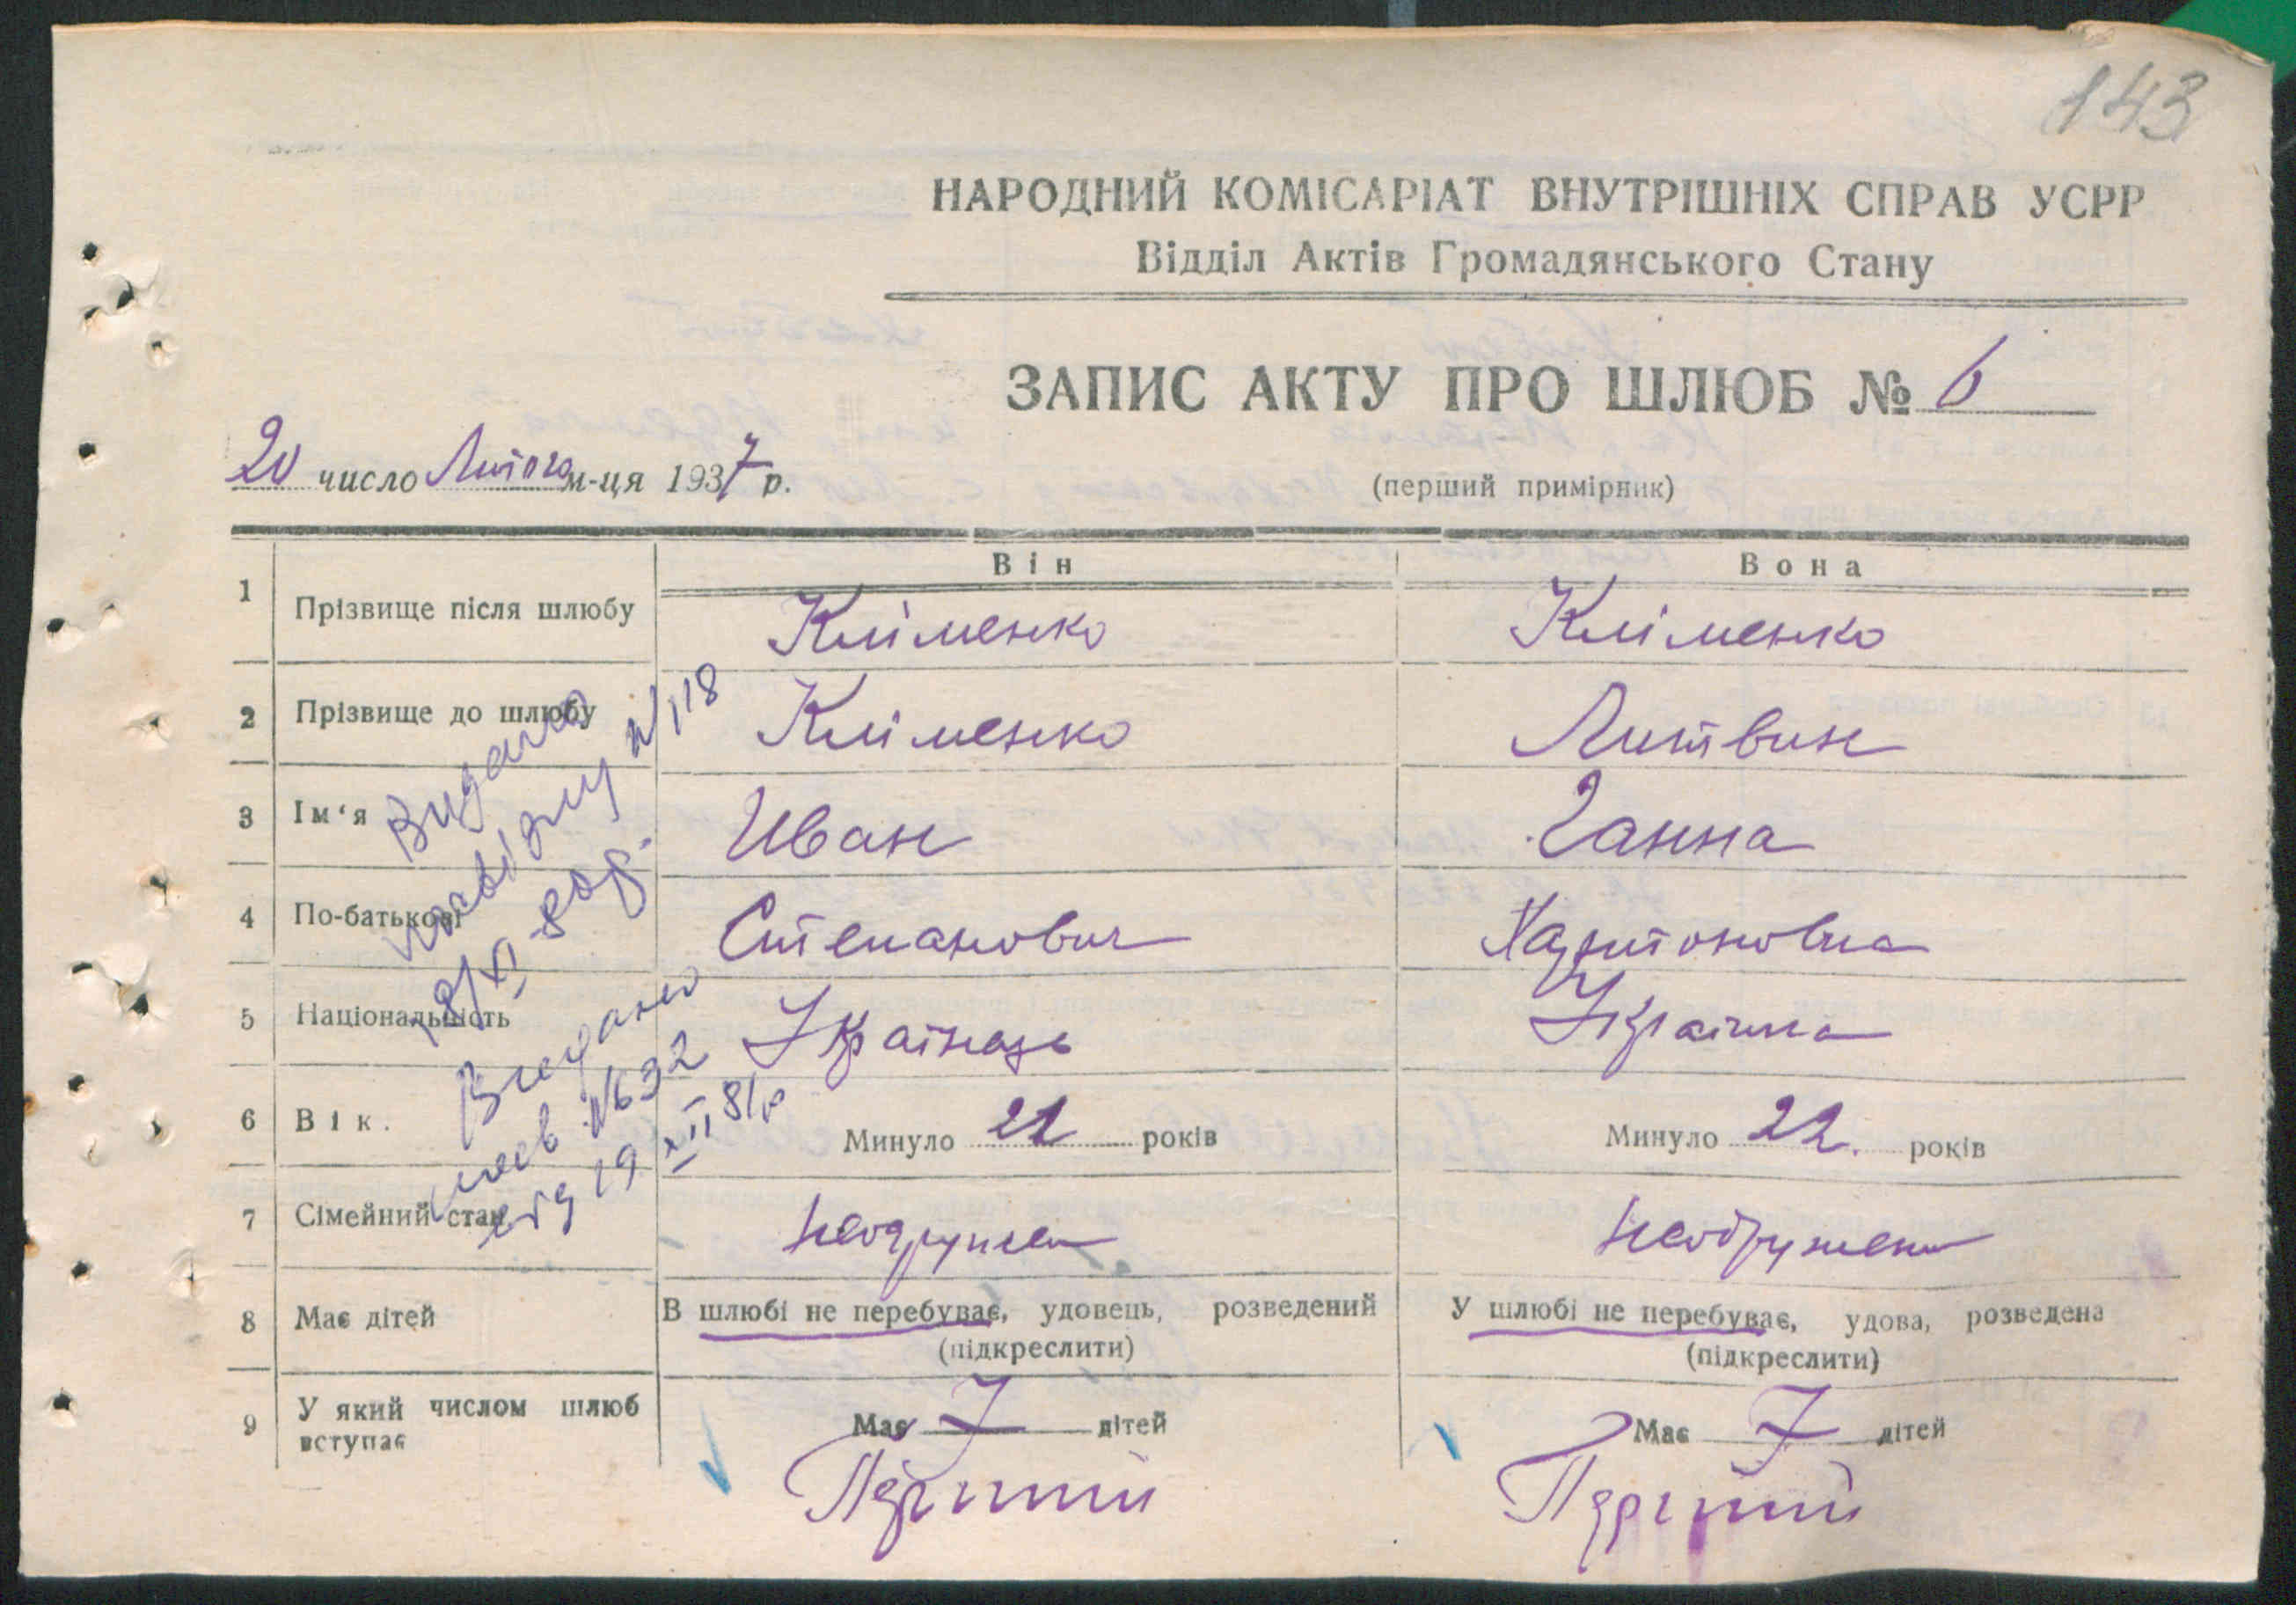 143
НАРОДНИЙ КОМІСАРІАТ ВНУТРІШНІХ СПРАВ УСРР
Відділ Актів Громадянського Стану
ЗАПИС АКТУ ПРО ШЛЮБ № 6
20 число Лютого м-ця 1937 р.
(перший примірник)
Він Вона
1 Прізвище після шлюбу Кліменко Кліменко
2 Прізвище до шлюбу Кліменко Литвин
3 Ім‘я Иван Ганна
4 По-батькові Степанович Харитоновна
5 Національність Українець Українка
6 Вік. Минуло 21 років Минуло 22. років
7 Сімейний стан
8 Має дітей В шлюбі не перебуває, удовець, розведений У шлюбі не перебуває, удова, розведена
(підкреслити) (підкреслити)
9 У який числом шлюб вступає Має дітей Має дітей
Видано
18/XI-80р.
Видано
№32
від 19 XII 81р